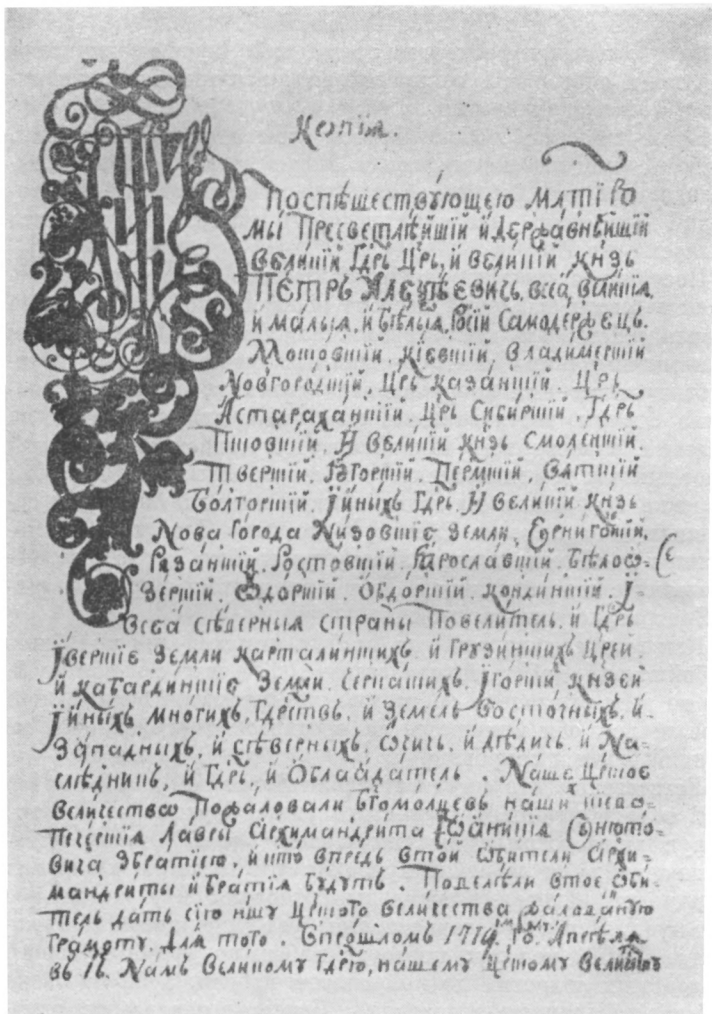 Копїя.
Поспѣшествующею млтїю
Мы Пресветлѣйшїй й державнѣйшїй
Великїй Гдрь Црь, й великїй князь
Пётръ Алеѯѣевичь, всеа великїя,
й малыя, й бѣлыя, Росїй Самодержецъ.
Московскїй, кїевскїй, владимерскїй
Новгородцкїй, Црь казанскїй, Црь
Астараханскїй, Црь Сибирскїй, Гдрь
Псковскїй, И великїй князь Смоленскїй,
Тверскїй, Югорскїй, Пермскїй, вятцкїй
Болгорскїй, Їйныхъ Гдрь, И великїй князь
Нова Города Низовскїе земли, Чернигов̾скїй,
Рязанскїй, Ростовскїй, Ярославскїй, бѣлоѡ-
зерскїй, Ѹдорскїй, Обдорскїй, кондинскїй, Ї
всеа сѣверныя страны Повелитель, й Гдрь
Їверскїе земли карталинскихъ, й Грузинскихъ Црей
й кабардинскїе земли, Черкаскихъ, Їгорскїй князей
Їйныхъ многихъ, Гдрствъ, й земель восточныхъ, й
западныхъ, й сѣверныхъ, ѿчичь, й дѣдичь, й На-
слѣдникъ, й Гдрь, й Обладатель. Наше Црское
величество Пожаловали бгомолцевъ нашихъ кїево-
печерскїя Лавры Архимандрита Їѡаникїя Сенюто-
вича збратїею, йкто впредь втой ѡбители Архи-
мандриты йбратїя будутъ. Повелѣли втое ѡби-
тель дать сїю ншу Црского величества жалованую
грамоту, для того. Впрошломъ 1719м. Гѡ. Апрѣля
въ Намъ великому Гдрю, нашему Црскому величеству